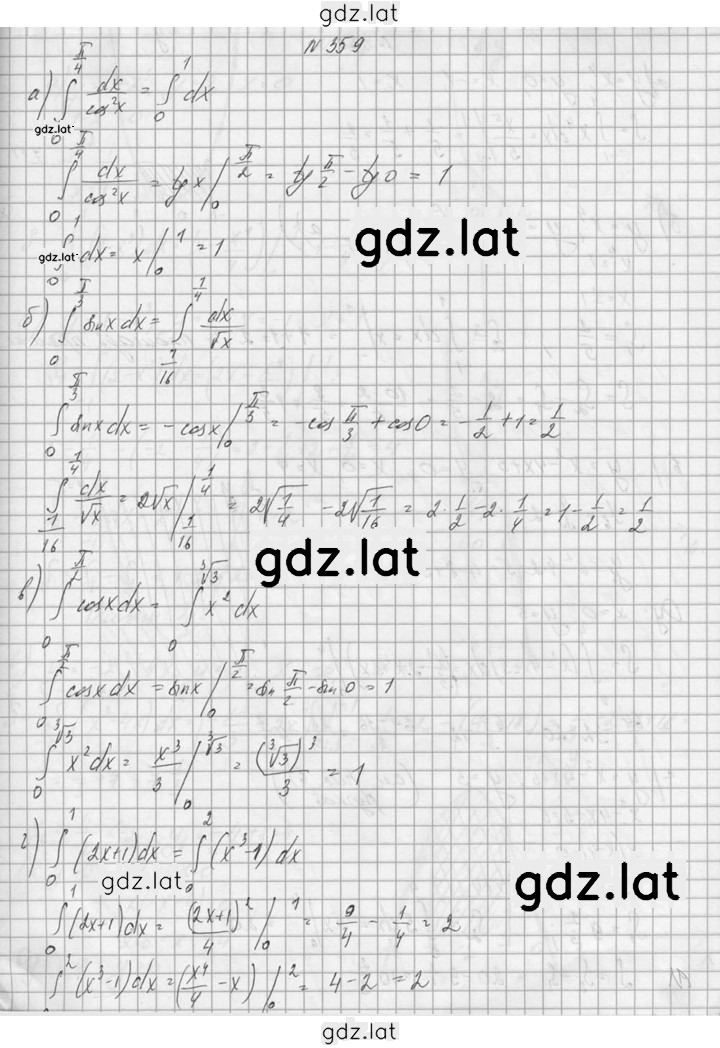 gdz.lat
N 359
а) ∫₀^{π/4} dx/cos²x = ∫₀^1 dx
gdz.lat
∫₀^{π/4} dx/cos²x = tg x |₀^{π/2} = tg π/2 - tg 0 = 1
gdz.lat
∫₀^1 dx = x |₀^1 = 1
gdz.lat
б) ∫₀^{π/3} sin x dx = ∫_{1/16}^{1/4} dx/√x
∫₀^{π/3} sin x dx = -cos x |₀^{π/3} = -cos π/3 + cos 0 = -1/2 + 1 = 1/2
∫_{1/16}^{1/4} dx/√x = 2√x |_{1/16}^{1/4} = 2√(1/4) - 2√(1/16) = 2·1/2 - 2·1/4 = 1 - 1/2 = 1/2
gdz.lat
в) ∫₀^{π/2} cos x dx = ∫₀^{∛3} x² dx
∫₀^{π/2} cos x dx = sin x |₀^{π/2} = sin π/2 - sin 0 = 1
∫₀^{∛3} x² dx = x³/3 |₀^{∛3} = (∛3)³/3 = 1
г) ∫₀^1 (2x+1) dx = ∫₀^2 (x³-1) dx
gdz.lat
gdz.lat
∫₀^1 (2x+1) dx = (2x+1)²/4 |₀^1 = 9/4 - 1/4 = 2
∫₀^2 (x³-1) dx = (x⁴/4 - x) |₀^2 = 4-2 = 2
gdz.lat